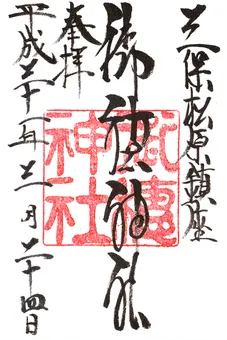 三保松原鎮座
御穂神社
御穗
神社
奉拝
平成二十一年三月二十四日